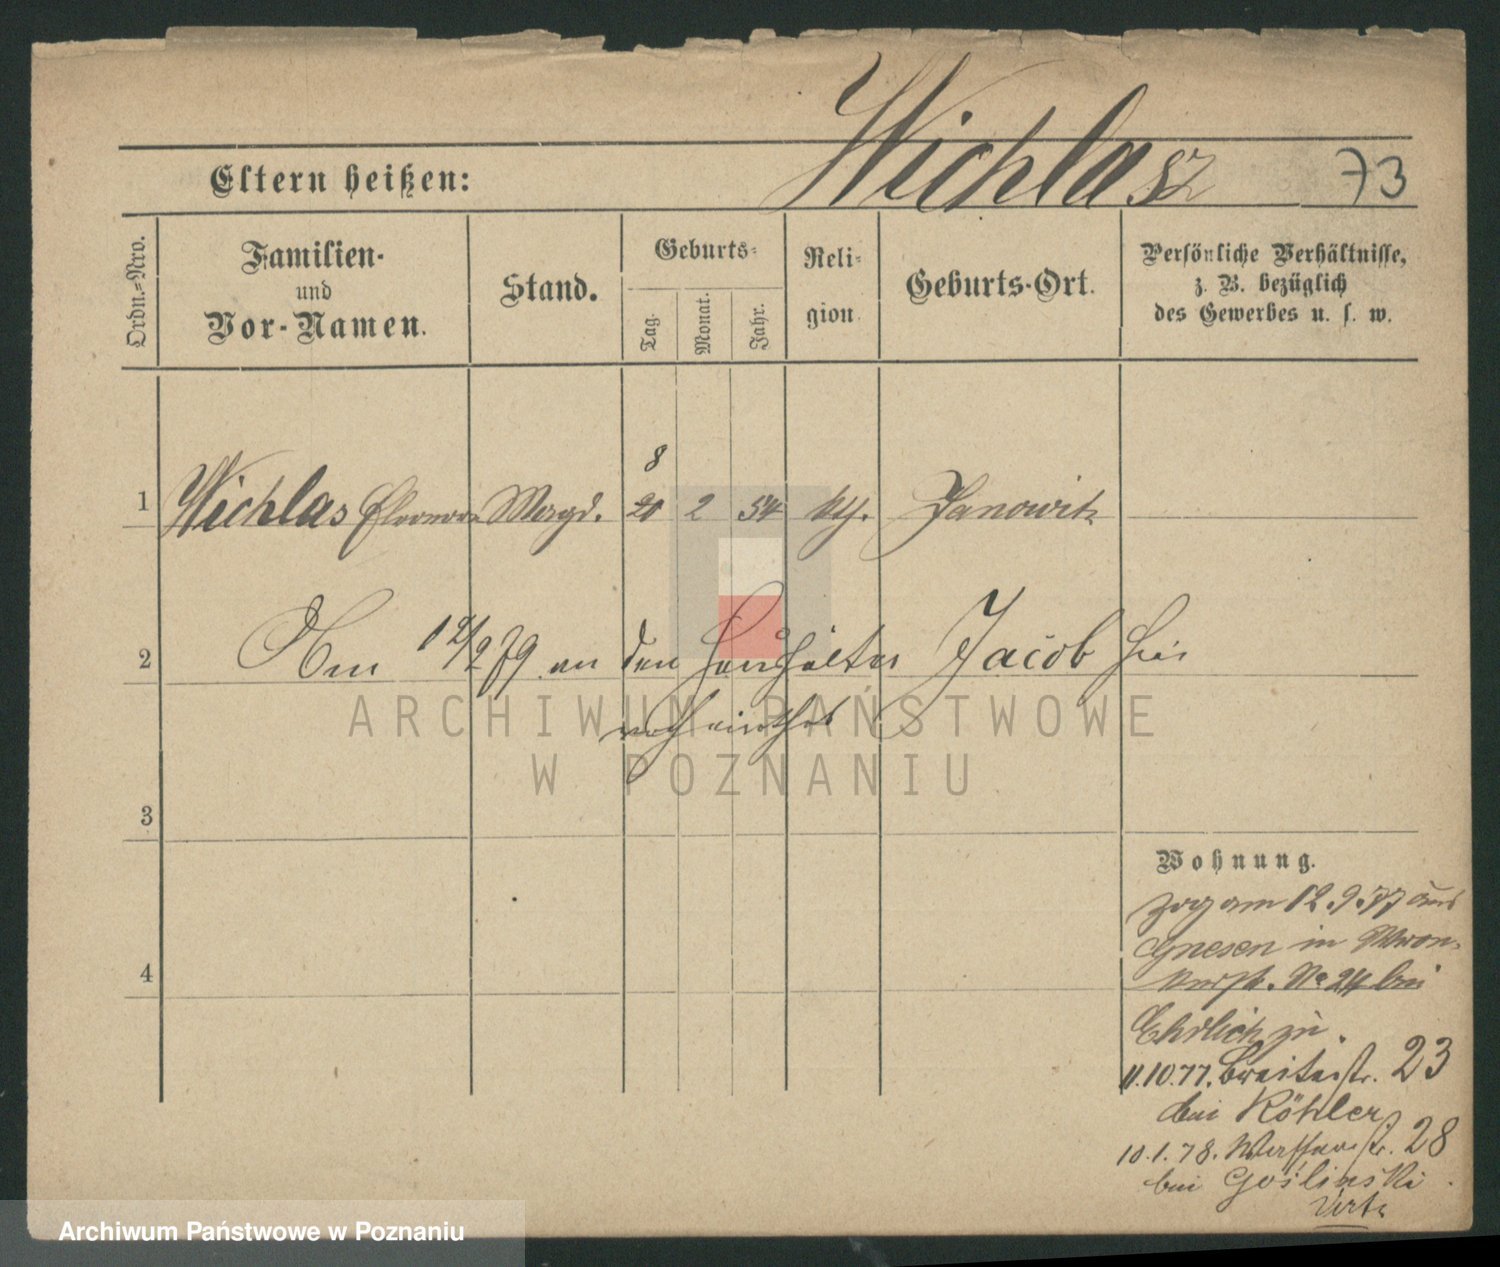 Wichlasz
Eltern heißen:
73
Ordn.-Nro.
Familien-
und
Vor-Namen.
Stand.
Geburts-
Tag.
Monat.
Jahr.
Reli-
gion
Geburts-Ort.
Persönliche Verhältnisse,
z. B. bezüglich
des Gewerbes u. s. w.
8
1 Wichlas Eleonore Magd. 20 2 54 kth. Janowitz
2 Am 12/2 79 an den Haushälter Jacob hier
verheirathet
ARCHIWUM PAŃSTWOWE
W POZNANIU
3
4
Wohnung.
zog am 12.9.77 aus
Gnesen in Wron-
kerstr. No 24 bei
Ehrlich zu.
11.10.77. Breitestr. 23
bei Köhler
10.1.78. Wasserstr. 28
bei Goślinski
Archiwum Państwowe w Poznaniu